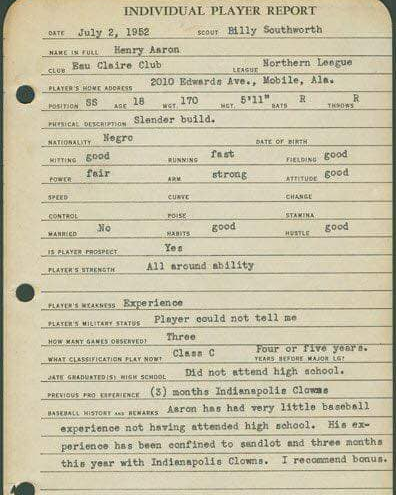 INDIVIDUAL PLAYER REPORT
DATE July 2, 1952 SCOUT Billy Southworth
NAME IN FULL Henry Aaron
CLUB Eau Claire Club LEAGUE Northern League
PLAYER'S HOME ADDRESS 2010 Edwards Ave., Mobile, Ala.
POSITION SS AGE 18 WGT. 170 HGT. 5'11" BATS R THROWS R
PHYSICAL DESCRIPTION Slender build.
NATIONALITY Negro DATE OF BIRTH
HITTING good RUNNING fast FIELDING good
POWER fair ARM strong ATTITUDE good
SPEED CURVE CHANGE
CONTROL POISE STAMINA
MARRIED No HABITS good HUSTLE good
IS PLAYER PROSPECT Yes
PLAYER'S STRENGTH All around ability
PLAYER'S WEAKNESS Experience
PLAYER'S MILITARY STATUS Player could not tell me
HOW MANY GAMES OBSERVED? Three
WHAT CLASSIFICATION PLAY NOW? Class C Four or five years. YEARS BEFORE MAJOR LG?
DATE GRADUATED(S) HIGH SCHOOL Did not attend high school.
PREVIOUS PRO EXPERIENCE (3) months Indianapolis Clowns
BASEBALL HISTORY AND REMARKS Aaron has had very little baseball
experience not having attended high school. His ex-
perience has been confined to sandlot and three months
this year with Indianapolis Clowns. I recommend bonus.